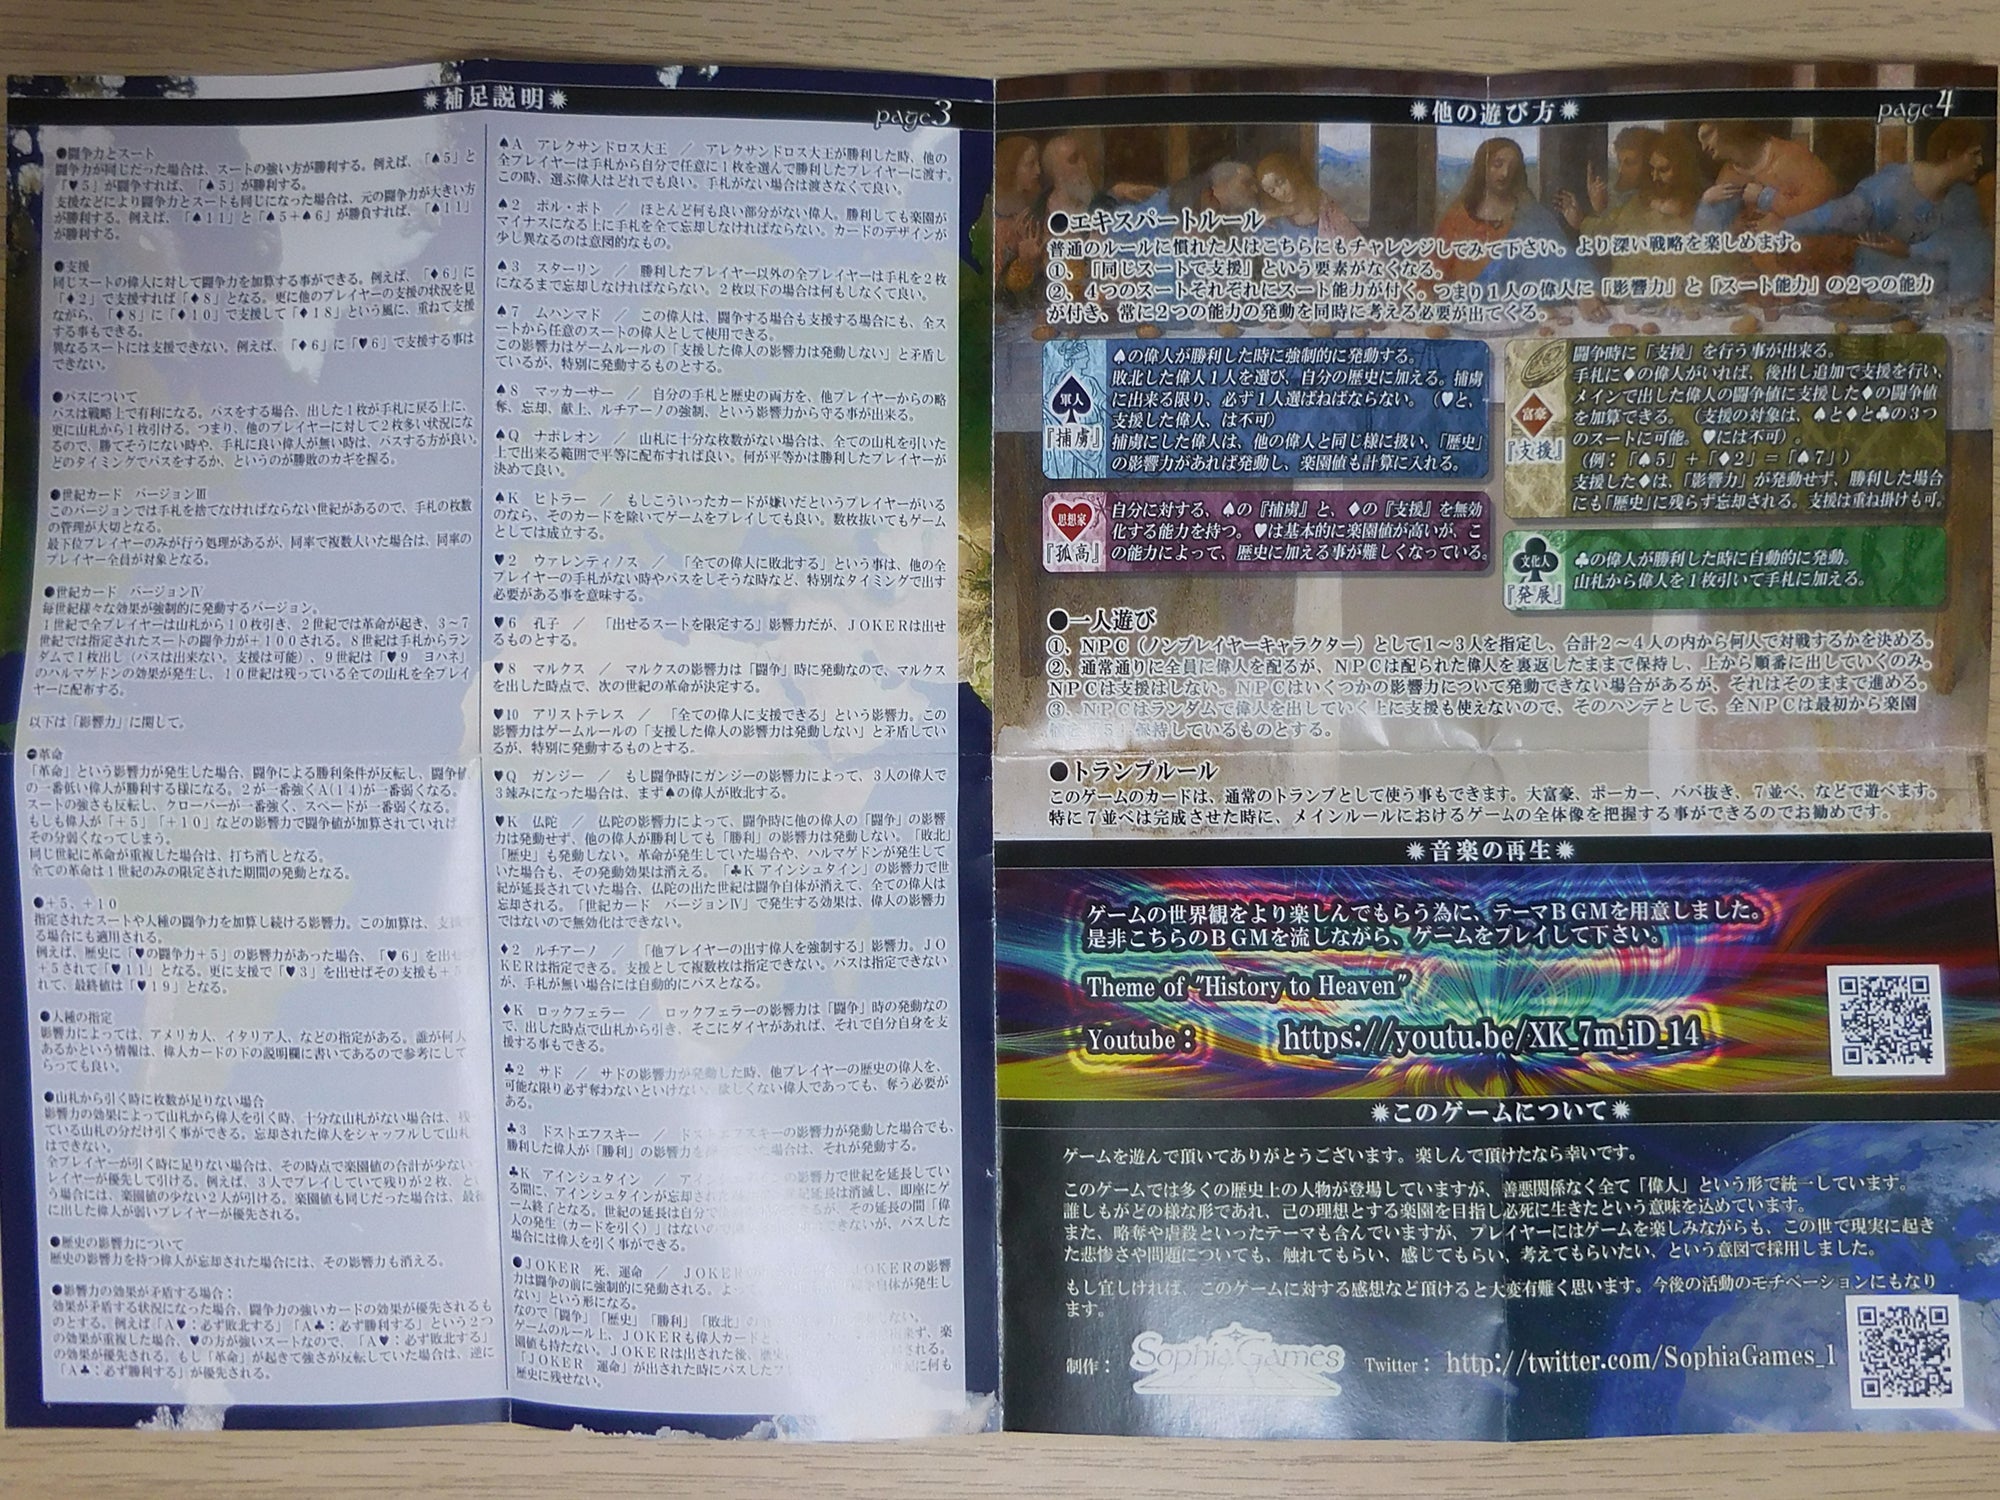 ✹補足説明✹
page3
●闘争力とスート
闘争力が同じだった場合は、スートの強い方が勝利する。例えば、「♠5」と
「♥5」が闘争すれば、「♠5」が勝利する。
支援などにより闘争力とスートも同じになった場合は、元の闘争力が大きい方
が勝利する。例えば、「♠11」と「♠5+♠6」が勝負すれば、「♠11」
が勝利する。
●支援
同じスートの偉人に対して闘争力を加算する事ができる。例えば、「♦6」に
「♦2」で支援すれば「♦8」となる。更に他のプレイヤーの支援の状況を見
ながら、「♦8」に「♦10」で支援して「♦18」という風に、重ねて支援
する事もできる。
異なるスートには支援できない。例えば、「♦6」に「♥6」で支援する事は
できない。
●パスについて
パスは戦略上で有利になる。パスをする場合、出した1枚が手札に戻る上に、
更に山札から1枚引ける。つまり、他のプレイヤーに対して2枚多い状況にな
るので、勝てそうにない時や、手札に良い偉人が無い時は、パスする方が良い。
どのタイミングでパスをするか、というのが勝敗のカギを握る。
●世紀カード バージョンⅢ
このバージョンでは手札を捨てなければならない世紀があるので、手札の枚数
の管理が大切となる。
最下位プレイヤーのみが行う処理があるが、同率で複数人いた場合は、同率の
プレイヤー全員が対象となる。
●世紀カード バージョンⅣ
毎世紀様々な効果が強制的に発動するバージョン。
1世紀で全プレイヤーは山札から10枚引き、2世紀では革命が起き、3~7
世紀では指定されたスートの闘争力が+100される。8世紀は手札からラン
ダムで1枚出し(パスは出来ない。支援は可能)、9世紀は「♥9 ヨハネ」
のハルマゲドンの効果が発生し、10世紀は残っている全ての山札を全プレイ
ヤーに配布する。
以下は「影響力」に関して。
●革命
「革命」という影響力が発生した場合、闘争による勝利条件が反転し、闘争値
の一番低い偉人が勝利する様になる。2が一番強くA(14)が一番弱くなる。
スートの強さも反転し、クローバーが一番強く、スペードが一番弱くなる。
もしも偉人が「+5」「+10」などの影響力で闘争値が加算されていれば、
その分弱くなってしまう。
同じ世紀に革命が重複した場合は、打ち消しとなる。
全ての革命は1世紀のみの限定された期間の発動となる。
●+5、+10
指定されたスートや人種の闘争力を加算し続ける影響力。この加算は、支援す
る場合にも適用される。
例えば、歴史に「♥の闘争力+5」の影響力があった場合、「♥6」を出せば
+5されて「♥11」となる。更に支援で「♥3」を出せばその支援も+5
れて、最終値は「♥19」となる。
●人種の指定
影響力によっては、アメリカ人、イタリア人、などの指定がある。誰が何人
あるかという情報は、偉人カードの下の説明欄に書いてあるので参考にして
らっても良い。
●山札から引く時に枚数が足りない場合
影響力の効果によって山札から偉人を引く時、十分な山札がない場合は、残っ
ている山札の分だけ引く事ができる。忘却された偉人をシャッフルして山札
はできない。
全プレイヤーが引く時に足りない場合は、その時点で楽園値の合計が少ない
レイヤーが優先して引ける。例えば、3人でプレイしていて残りが2枚、とい
う場合には、楽園値の少ない2人が引ける。楽園値も同じだった場合は、最後
に出した偉人が弱いプレイヤーが優先される。
●歴史の影響力について
歴史の影響力を持つ偉人が忘却された場合には、その影響力も消える。
●影響力の効果が矛盾する場合:
効果が矛盾する状況になった場合、闘争力の強いカードの効果が優先されるも
のとする。例えば「A♥:必ず敗北する」「A♣:必ず勝利する」という2つ
の効果が重複した場合、♥の方が強いスートなので、「A♥:必ず敗北する」
の効果が優先される。もし「革命」が起きて強さが反転していた場合は、逆に
「A♣:必ず勝利する」が優先される。
♠A アレクサンドロス大王 / アレクサンドロス大王が勝利した時、他の
全プレイヤーは手札から自分で任意に1枚を選んで勝利したプレイヤーに渡す。
この時、選ぶ偉人はどれでも良い。手札がない場合は渡さなくて良い。
♠2 ポル・ポト / ほとんど何も良い部分がない偉人。勝利しても楽園が
マイナスになる上に手札を全て忘却しなければならない。カードのデザインが
少し異なるのは意図的なもの。
♠3 スターリン / 勝利したプレイヤー以外の全プレイヤーは手札を2枚
になるまで忘却しなければならない。2枚以下の場合は何もしなくて良い。
♠7 ムハンマド / この偉人は、闘争する場合も支援する場合にも、全ス
ートから任意のスートの偉人として使用できる。
この影響力はゲームルールの「支援した偉人の影響力は発動しない」と矛盾し
ているが、特別に発動するものとする。
♠8 マッカーサー / 自分の手札と歴史の両方を、他プレイヤーからの略
奪、忘却、献上、ルチアーノの強制、という影響力から守る事が出来る。
♠Q ナポレオン / 山札に十分な枚数がない場合は、全ての山札を引いた
上で出来る範囲で平等に配布すれば良い。何が平等かは勝利したプレイヤーが
決めて良い。
♠K ヒトラー / もしこういったカードが嫌いだというプレイヤーがいる
のなら、そのカードを除いてゲームをプレイしても良い。数枚抜いてもゲーム
としては成立する。
♥2 ウァレンティノス / 「全ての偉人に敗北する」という事は、他の全
プレイヤーの手札がない時やパスをしそうな時など、特別なタイミングで出す
必要がある事を意味する。
♥6 孔子 / 「出せるスートを限定する」影響力だが、JOKERは出せ
るものとする。
♥8 マルクス / マルクスの影響力は「闘争」時に発動なので、マルクス
を出した時点で、次の世紀の革命が決定する。
♥10 アリストテレス / 「全ての偉人に支援できる」という影響力。この
影響力はゲームルールの「支援した偉人の影響力は発動しない」と矛盾してい
るが、特別に発動するものとする。
♥Q ガンジー / もし闘争時にガンジーの影響力によって、3人の偉人で
3竦みになった場合は、まず♠の偉人が敗北する。
♥K 仏陀 / 仏陀の影響力によって、闘争時に他の偉人の「闘争」の影響
力は発動せず、他の偉人が勝利しても「勝利」の影響力は発動しない。「敗北」
「歴史」も発動しない。革命が発生していた場合や、ハルマゲドンが発生して
いた場合も、その発動効果は消える。「♣K アインシュタイン」の影響力で世
紀が延長されていた場合、仏陀の出た世紀は闘争自体が消えて、全ての偉人は
忘却される。「世紀カード バージョンⅣ」で発生する効果は、偉人の影響力
ではないので無効化はできない。
♦2 ルチアーノ / 「他プレイヤーの出す偉人を強制する」影響力。JO
KERは指定できる。支援として複数枚は指定できない。パスは指定できない
が、手札が無い場合には自動的にパスとなる。
♦K ロックフェラー / ロックフェラーの影響力は「闘争」時の発動なの
で、出した時点で山札から引き、そこにダイヤがあれば、それで自分自身を支
援する事もできる。
♣2 サド / サドの影響力が発動した時、他プレイヤーの歴史の偉人を、
可能な限り必ず奪わないといけない。欲しくない偉人であっても、奪う必要が
ある。
♣3 ドストエフスキー / ドストエフスキーの影響力が発動した場合でも、
勝利した偉人が「勝利」の影響力を いた場合は、それが発動する。
♣K アインシュタイン / アインシュタインの影響力で世紀を延長してい
る間に、アインシュタインが忘却された 紀延長は消滅し、即座にゲ
ーム終了となる。世紀の延長は自分で るが、その延長の間「偉
人の発生(カードを引く)」はないので できないが、パスした
場合には偉人を引く事ができる。
●JOKER 死、運命 / JOKER JOKERの影響
力は闘争の前に強制的に発動される。よって 自体が発生し
ない」という形になる。
なので「闘争」「歴史」「勝利」「敗北」の ない。
ゲームのルール上、JOKERも偉人カードと 出来ず、楽
園値も持たない。JOKERは出された後、歴史 される。
「JOKER 運命」が出された時にパスしたプ に何も
歴史に残せない。
✹他の遊び方✹
page4
●エキスパートルール
普通のルールに慣れた人はこちらにもチャレンジしてみて下さい。より深い戦略を楽しめます。
①、「同じスートで支援」という要素がなくなる。
②、4つのスートそれぞれにスート能力が付く。つまり1人の偉人に「影響力」と「スート能力」の2つの能力
が付き、常に2つの能力の発動を同時に考える必要が出てくる。
軍人
『捕虜』
♠の偉人が勝利した時に強制的に発動する。
敗北した偉人1人を選び、自分の歴史に加える。捕虜
に出来る限り、必ず1人選ばねばならない。(♥と、
支援した偉人、は不可)
捕虜にした偉人は、他の偉人と同じ様に扱い、「歴史」
の影響力があれば発動し、楽園値も計算に入れる。
思想家
『孤高』
自分に対する、♠の『捕虜』と、♦の『支援』を無効
化する能力を持つ。♥は基本的に楽園値が高いが、こ
の能力によって、歴史に加える事が難しくなっている。
富豪
『支援』
闘争時に「支援」を行う事が出来る。
手札に♦の偉人がいれば、後出し追加で支援を行い、
メインで出した偉人の闘争値に支援した♦の闘争値
を加算できる。(支援の対象は、♠と♦と♣の3つ
のスートに可能。♥には不可)。
(例:「♠5」+「♦2」=「♠7」)
支援した♦は、「影響力」が発動せず、勝利した場合
にも「歴史」に残らず忘却される。支援は重ね掛けも可。
文化人
『発展』
♣の偉人が勝利した時に自動的に発動。
山札から偉人を1枚引いて手札に加える。
●一人遊び
①、NPC(ノンプレイヤーキャラクター)として1~3人を指定し、合計2~4人の内から何人で対戦するかを決める。
②、通常通りに全員に偉人を配るが、NPCは配られた偉人を裏返したままで保持し、上から順番に出していくのみ。
NPCは支援はしない。NPCはいくつかの影響力について発動できない場合があるが、それはそのままで進める。
③、NPCはランダムで偉人を出していく上に支援も使えないので、そのハンデとして、全NPCは最初から楽園
値を「5」保持しているものとする。
●トランプルール
このゲームのカードは、通常のトランプとして使う事もできます。大富豪、ポーカー、ババ抜き、7並べ、などで遊べます。
特に7並べは完成させた時に、メインルールにおけるゲームの全体像を把握する事ができるのでお勧めです。
✹音楽の再生✹
ゲームの世界観をより楽しんでもらう為に、テーマBGMを用意しました。
是非こちらのBGMを流しながら、ゲームをプレイして下さい。
Theme of "History to Heaven"
Youtube: https://youtu.be/XK_7m_iD_14
✹このゲームについて✹
ゲームを遊んで頂いてありがとうございます。楽しんで頂けたなら幸いです。
このゲームでは多くの歴史上の人物が登場していますが、善悪関係なく全て「偉人」という形で統一しています。
誰しもがどの様な形であれ、己の理想とする楽園を目指し必死に生きたという意味を込めています。
また、略奪や虐殺といったテーマも含んでいますが、プレイヤーにはゲームを楽しみながらも、この世で現実に起き
た悲惨さや問題についても、触れてもらい、感じてもらい、考えてもらいたい、という意図で採用しました。
もし宜しければ、このゲームに対する感想など頂けると大変有難く思います。今後の活動のモチベーションにもなり
ます。
制作: SophiaGames Twitter: http://twitter.com/SophiaGames_1